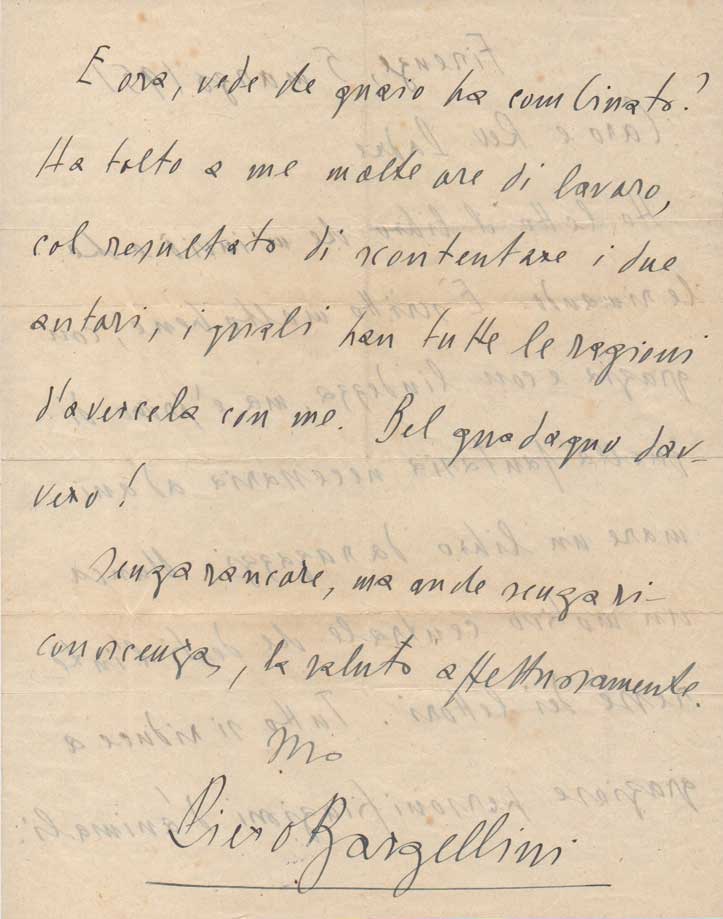 E ora, vede che guaio ha combinato?
Ha tolto a me molte ore di lavoro,
col resultato di scontentare i due
autori, i quali han tutte le ragioni
d'avercela con me. Bel guadagno dav-
vero!
Senza rancore, ma anche senza ri-
conoscenza, la saluto affettuosamente.
Suo
Piero Bargellini